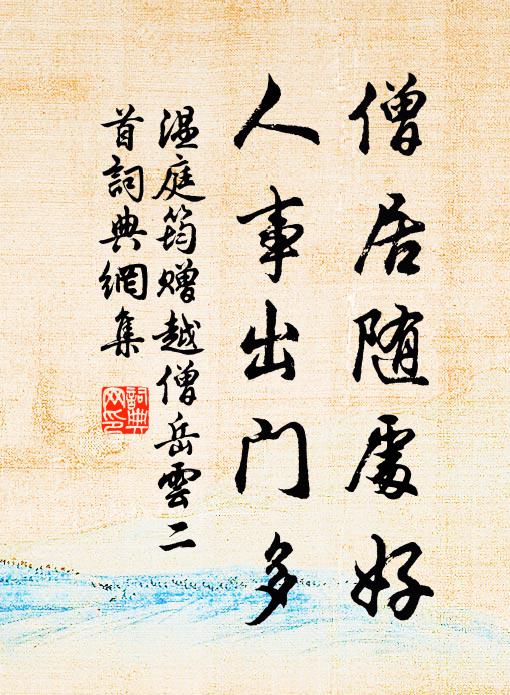 僧居随處好
人事出門多
温庭筠贈越僧岳雲二
首詞典網集
詞典
网印